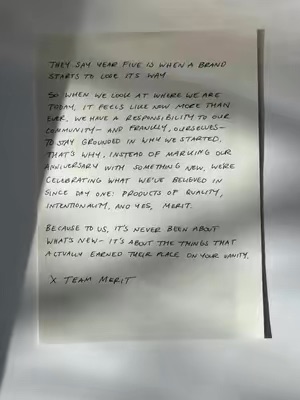 THEY SAY YEAR FIVE IS WHEN A BRAND
STARTS TO LOSE IT'S WAY.
SO WHEN WE LOOK AT WHERE WE ARE
TODAY, IT FEELS LIKE NOW MORE THAN
EVER, WE HAVE A RESPONSIBILITY TO OUR
COMMUNITY— AND FRANKLY, OURSELVES—
TO STAY GROUNDED IN WHY WE STARTED.
THAT'S WHY, INSTEAD OF MARKING OUR
ANNIVERSARY WITH SOMETHING NEW, WE'RE
CELEBRATING WHAT WE'VE BELIEVED IN
SINCE DAY ONE: PRODUCTS OF QUALITY,
INTENTIONALITY, AND YES, MERIT.
BECAUSE TO US, IT'S NEVER BEEN ABOUT
WHAT'S NEW— IT'S ABOUT THE THINGS THAT
ACTUALLY EARNED THEIR PLACE ON YOUR VANITY.
X TEAM MERIT